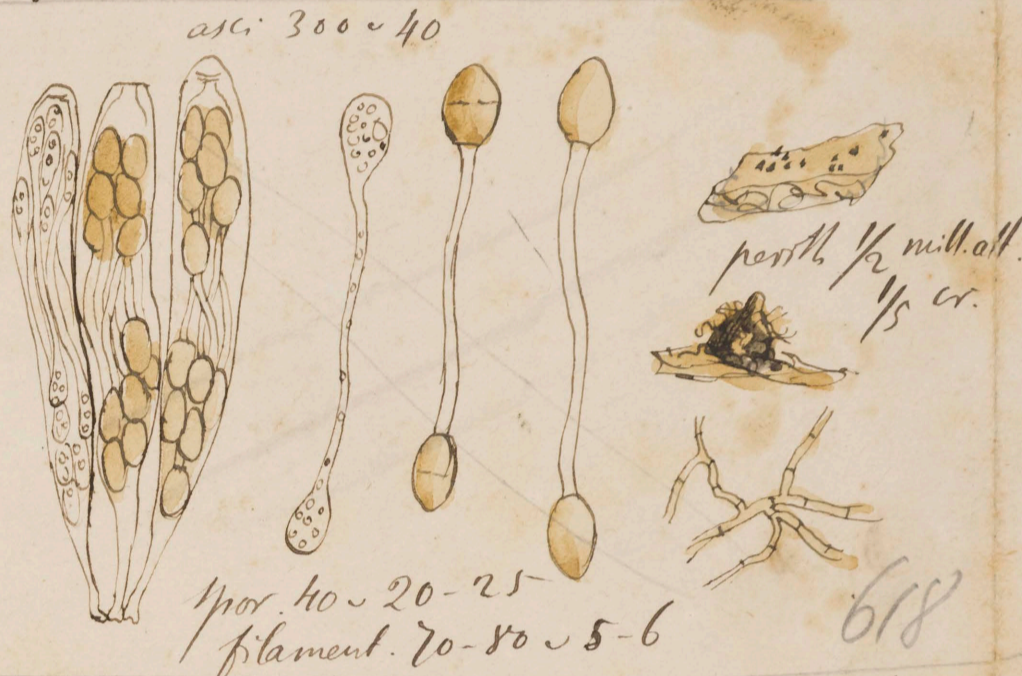 asci 300 ~ 40
perith 1/2 mill. alt.
1/5 cr.
spor. 40 ~ 20-25
filament. 70-80 ~ 5-6
618